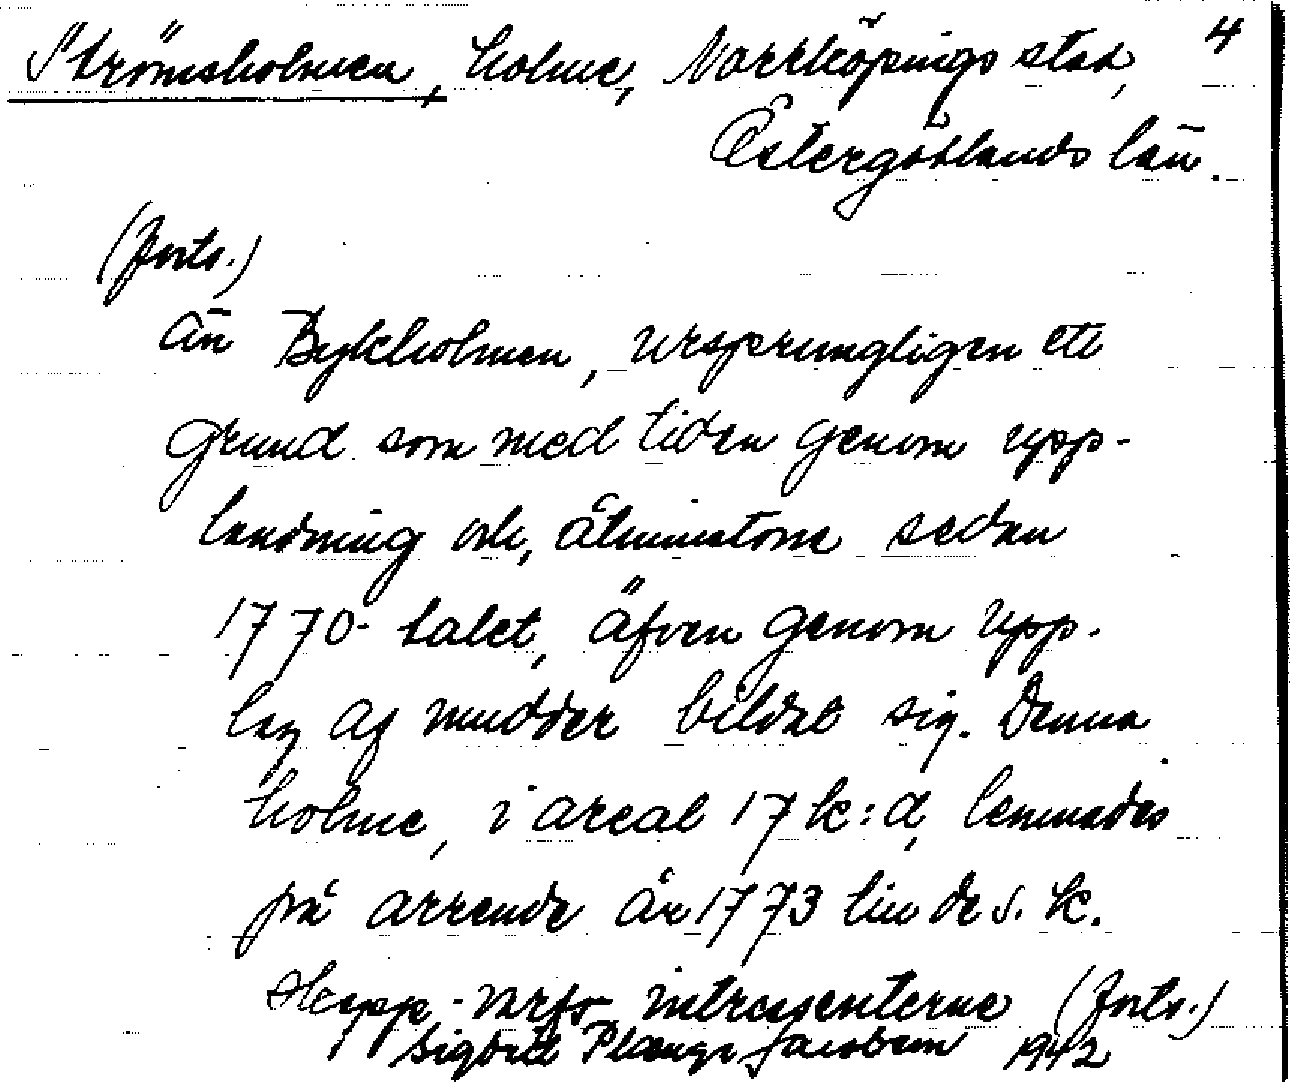 Strömsholmen, holme, Norrköpings stad, 4
Östergötlands län.
(forts.)
än Bykholmen, ursprungligen ett
grund som med tiden genom upp-
landning och, åtminstone sedan
1770-talet, äfven genom upp-
lag af mudder bildat sig. Denna
holme, i areal 17 k:d, lemnades
på arrende år 1773 till de s. k.
Skepp-varfs-intressenterne (forts.)
Sigbrit Plænge Jacobson 1942